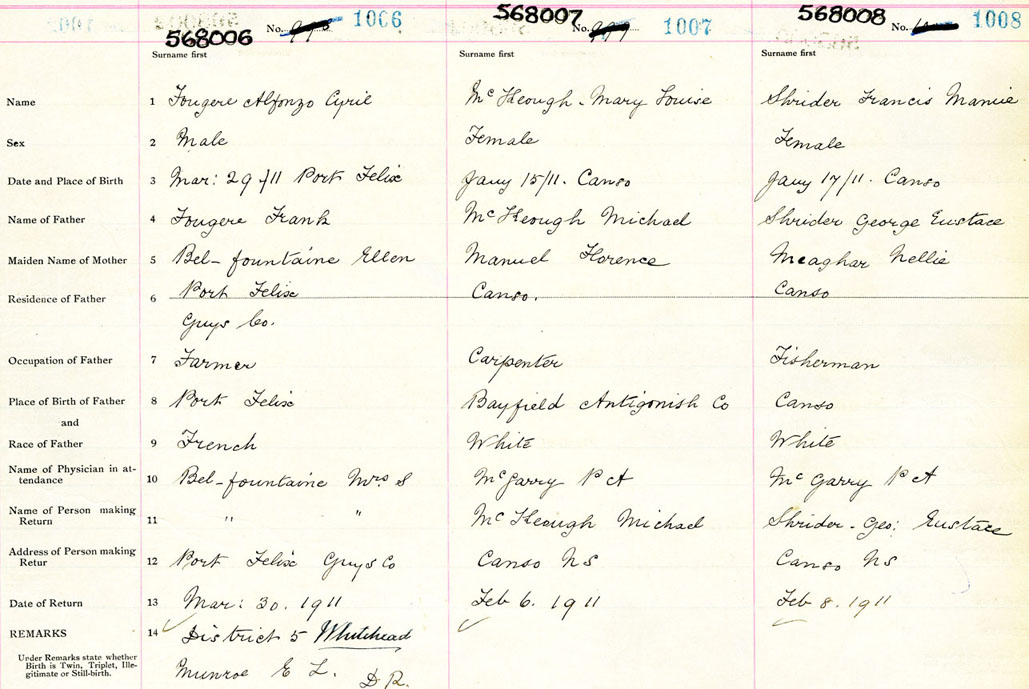 568006 No. 1006 568007 No. 1007 568008 No. 1008
Surname first Surname first Surname first
Name 1 Fougere Alfonzo Cyril McKeough - Mary Louise Shrider Francis Mamie
Sex 2 Male Female Female
Date and Place of Birth 3 Mar: 29/11 Port Felix Jany 15/11. Canso Jany 17/11. Canso
Name of Father 4 Fougere Frank McKeough Michael Shrider George Eustace
Maiden Name of Mother 5 Bel-fountaine Ellen Manuel Florence Meaghar Nellie
Residence of Father 6 Port Felix Canso. Canso
Guys Co.
Occupation of Father 7 Farmer Carpenter Fisherman
Place of Birth of Father 8 Port Felix Bayfield Antigonish Co Canso
and
Race of Father 9 French White White
Name of Physician in at-
tendance 10 Bel-fountaine Mrs S McGarry P A McGarry P A
Name of Person making
Return 11 " " McKeough Michael Shrider - Geo: Eustace
Address of Person making
Retur 12 Port Felix Guys Co Canso NS Canso NS
Date of Return 13 Mar: 30. 1911 Feb 6. 1911 Feb 8. 1911
REMARKS 14 District 5 Whitehead
Under Remarks state whether
Birth is Twin, Triplet, Ille-
gitimate or Still-birth.
Munroe E L. D R.